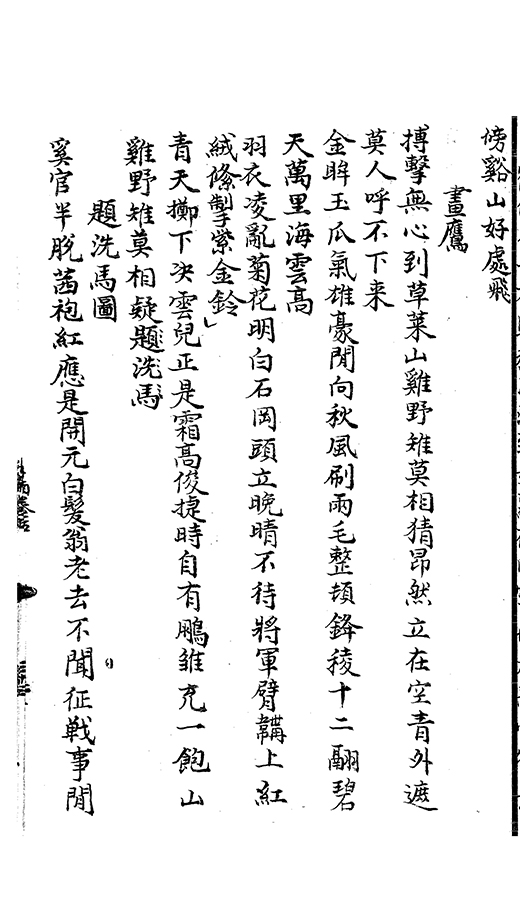 傍谿山好處飛
畫鷹
搏擊無心到草萊山雞野雉莫相猜昂然立在空青外遮
莫人呼不下来
金眸玉瓜氣雄豪閒向秋風刷雨毛整頓鋒稜十二翮碧
天萬里海雲高
羽衣凌亂菊花明白石岡頭立晚晴不待將軍臂韝上紅
絨絛掣紫金鈴
青天擲下决雲兒正是霜高俊捷時自有鵬雏充一飽山
雞野雉莫相疑題洗馬
題洗馬圖
奚官半脫茜袍紅應是開元白髮翁老去不聞征戦事閒